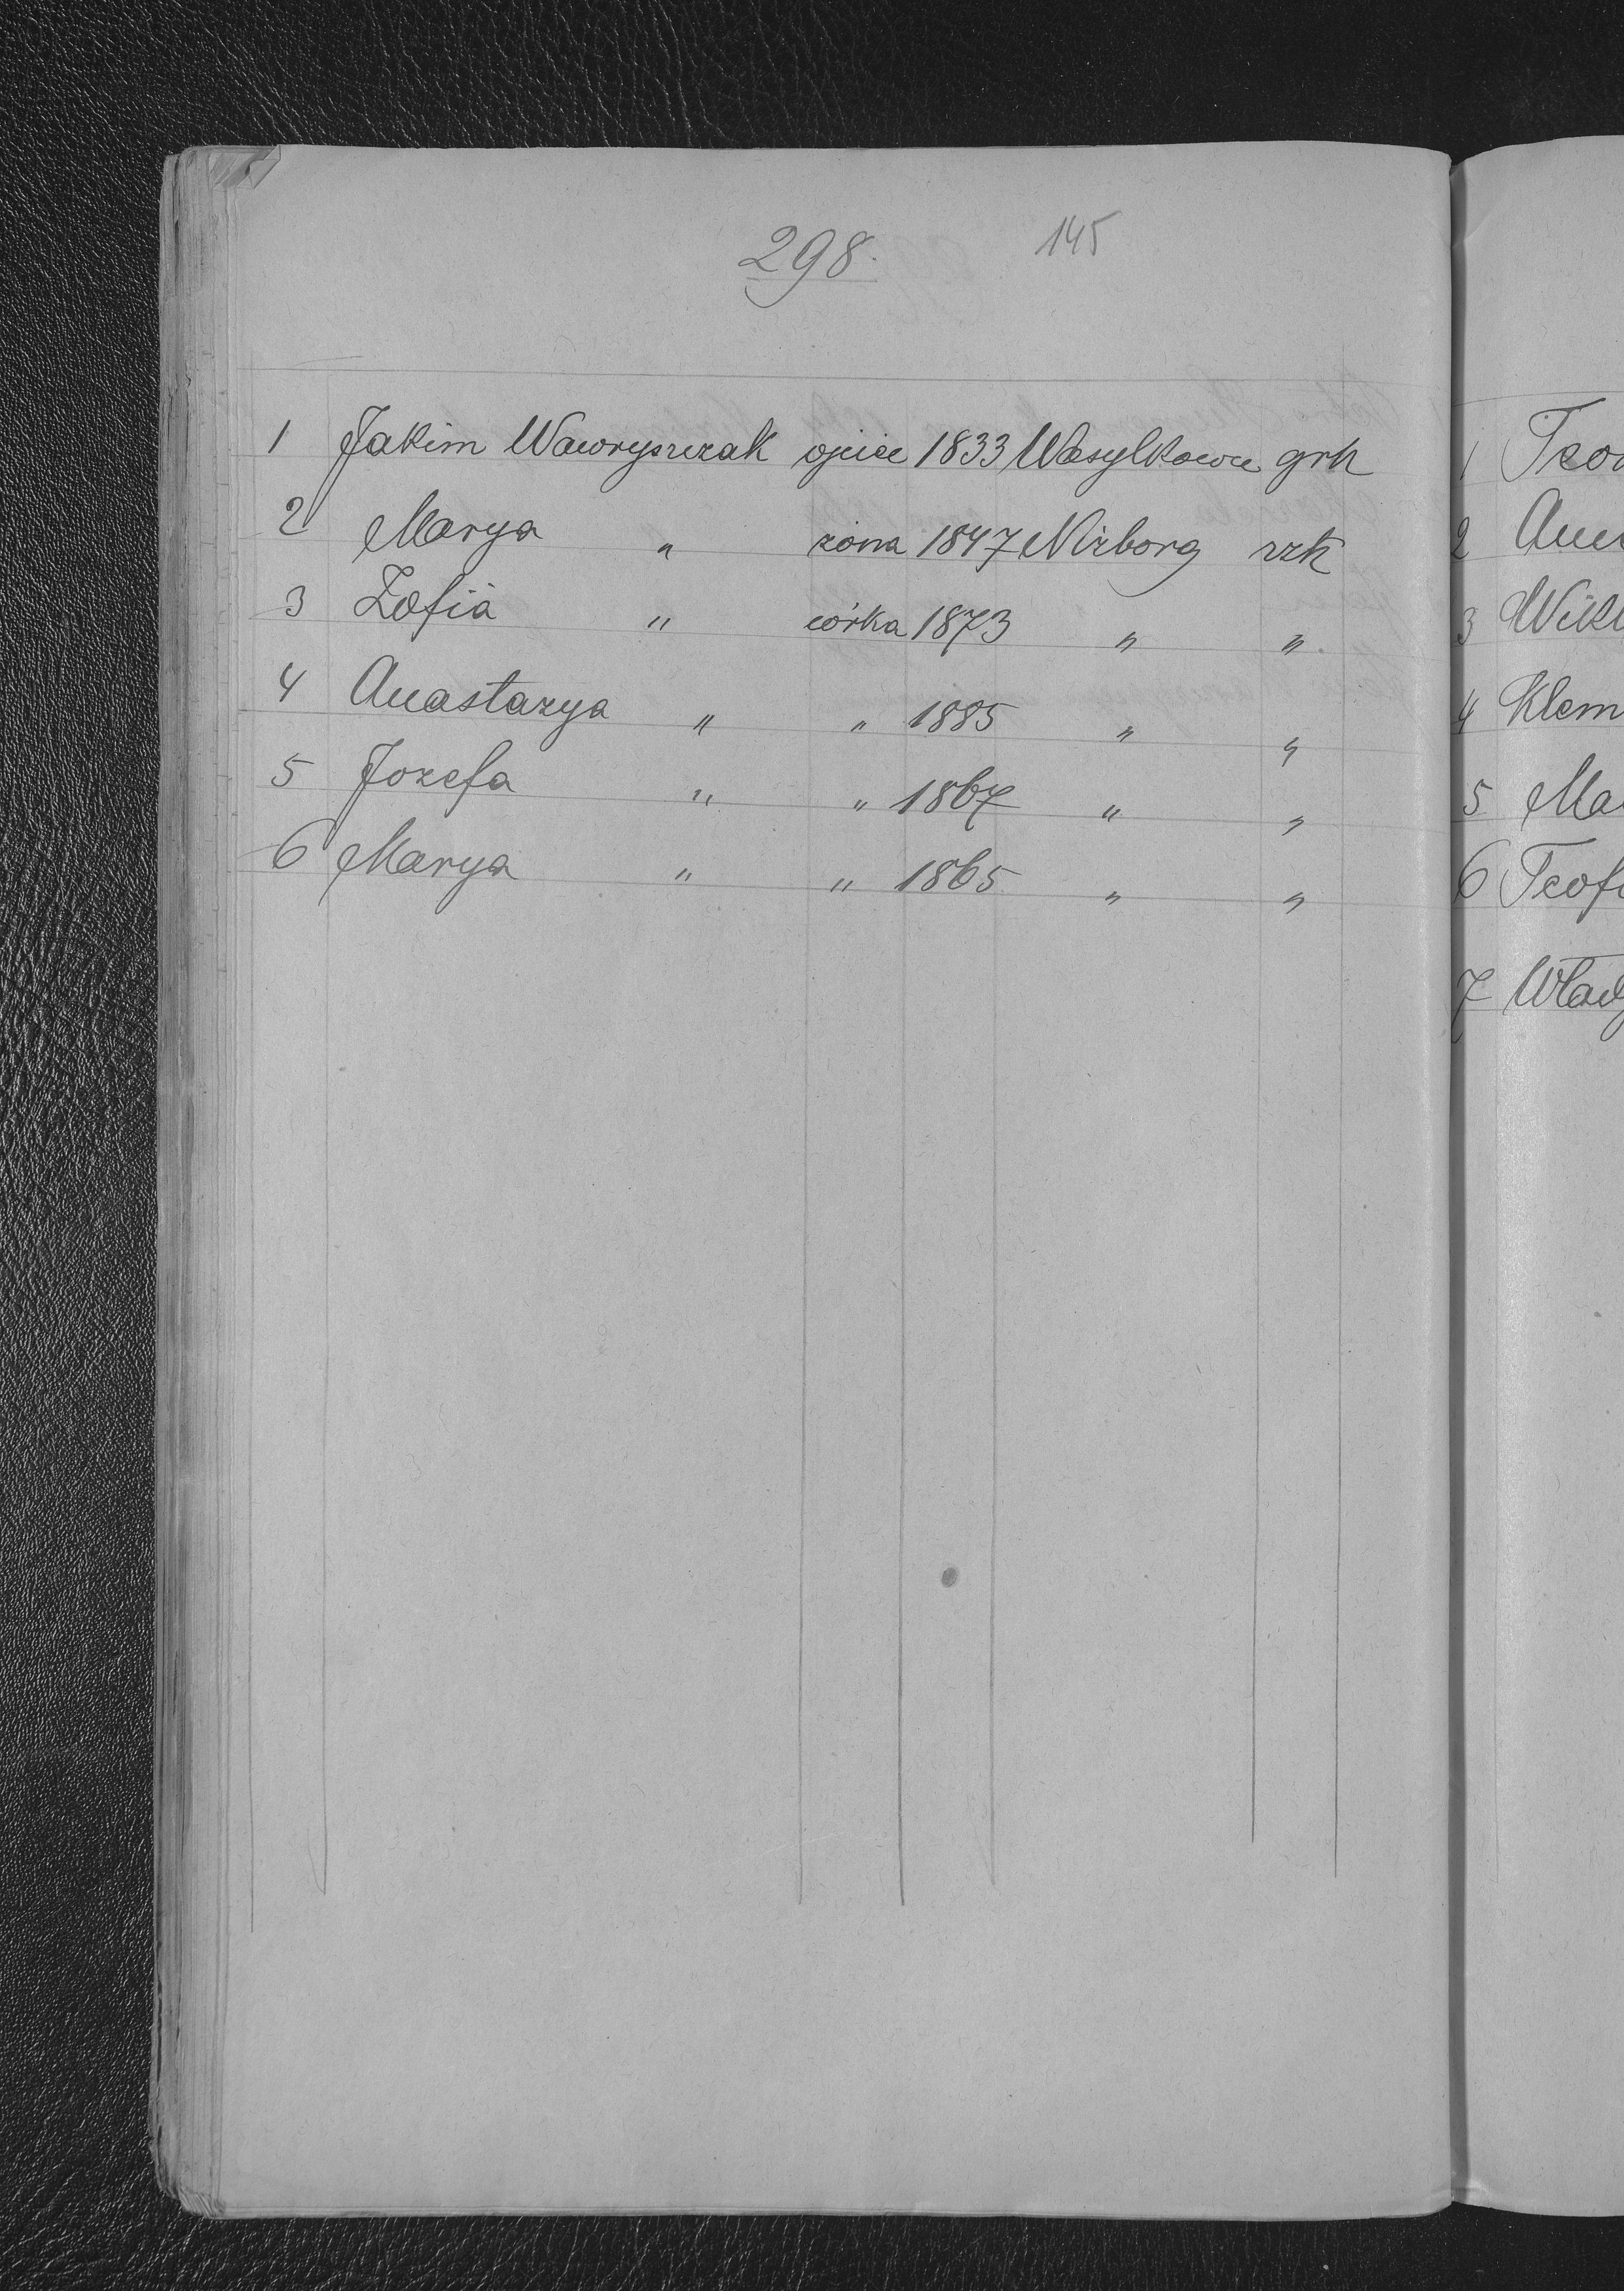 298. 145
1 Jakim Wawryszczak ojciec 1833 Wasylkowce grk
2 Marya " żona 1847 Niżborg rzk
3 Zofia " córka 1873 " "
4 Anastazya " " 1885 " "
5 Jozefa " " 1867 " "
6 Marya " " 1865 " "
1
2
3
4 Klem
5 Ma
6 Teof
7 Wład